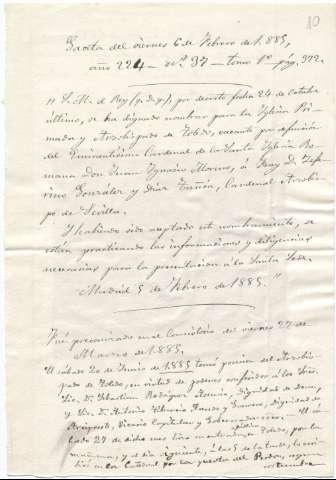 10
Gaceta del viernes 6 de Febrero de 1.885,
año 224 — nº 37 — tomo 1º pág. 372.
"S. M. el Rey (q. D. g.), por decreto fecha 24 de Octubre
último, se ha dignado nombrar para la Iglesia Pri-
mada y Arzobispado de Toledo, vacante por defunción
del Eminentísimo Cardenal de la Santa Iglesia Ro-
mana Don Juan Ignacio Moreno, á Fray D. Zefe-
rino González y Díaz Tuñón, Cardenal Arzobis-
po de Sevilla.
Y habiendo sido aceptado este nombramiento, se
están practicando las informaciones y diligencias
necesarias para la presentación á la Santa Sede.
Madrid 5 de Febrero de 1885."
Fué preconizado en el Consistorio del viernes 27 de
Marzo de 1.885.
El sábado 20 de Junio de 1885 tomó posesión del Arzobis-
pado de Toledo, en virtud de poderes conferidos á los Sres.
Lic. D. Sebastian Rodriguez Asensio, Dignidad de Dean,
y Lic. D. Antonio, Dignidad de
Arcipreste, Vicario Capitular y — El sá-
bado 27 de dicho mes hizo su entrada en Toledo, por la
mañana, y el dia siguiente, á las 5 de la tarde, la
en la Catedral por la puerta del Perdon, segun
costumbre.